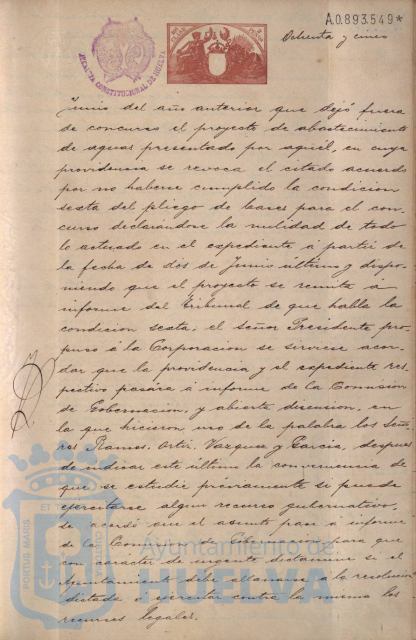 A.0.893.549*
Ochenta y cinco
ALCALDIA CONSTITUCIONAL DE HUELVA
Junio del año anterior que dejó fuera
de concurso el proyecto de abastecimiento
de aguas presentado por aquél, en cuya
providencia se revoca el citado acuerdo
por no haberse cumplido la condicion
sexta del pliego de bases para el con-
curso declarándose la nulidad de todo
lo actuado en el expediente á partir de
la fecha de dos de Junio último y dispo-
niendo que el proyecto se remita á
informe del Tribunal de que habla la
condicion sexta, el señor Presidente pro-
puso á la Corporacion se sirviese acor-
dar que la providencia y el expediente res-
pectivo pasára á informe de la Comision
de Gobernacion, y abierta discusion, en
la que hicieron uso de la palabra los Seño-
res Ramos, Ortiz, Vazquez y García, despues
de indicar este último la conveniencia de
que se estudie préviamente si puede
ejercitarse algun recurso gubernativo,
se acordó que el asunto pase á informe
de la Comision de Gobernacion para que
con carácter de urgente dictamine si el
Ayuntamiento debe allanarse á la resolucion
dictada ó ejercitar contra la misma los
recursos legales.
PORTUS MARIS
ET
CUSTODIA
Ayuntamiento de
HUELVA